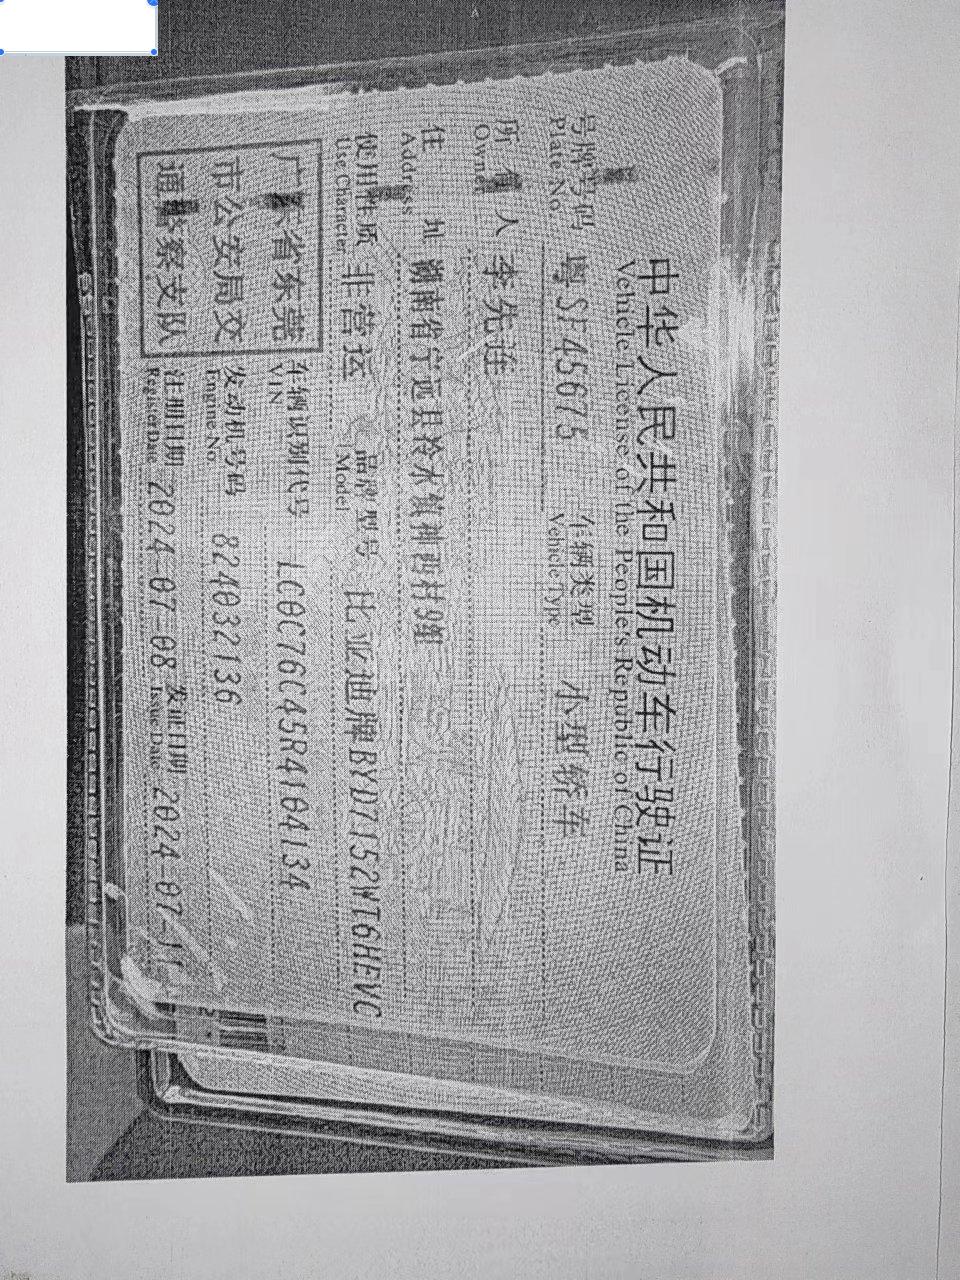 中华人民共和国机动车行驶证
Vehicle License of the People's Republic of China
号牌号码 粤SF45675 车辆类型 小型轿车
Plate No. Vehicle Type
所有人 李先连
Owner
住址 湖南省宁远县冷水镇
Address
使用性质 非营运 品牌型号 比亚迪牌BYD7152WT6HEVC
Use Character Model
广东省东莞市公安局交通警察支队
车辆识别代号 LC0C76C45R4104134
VIN
发动机号码 824032136
Engine No.
注册日期 2024-07-08 发证日期 2024-07-11
Register Date Issue Date